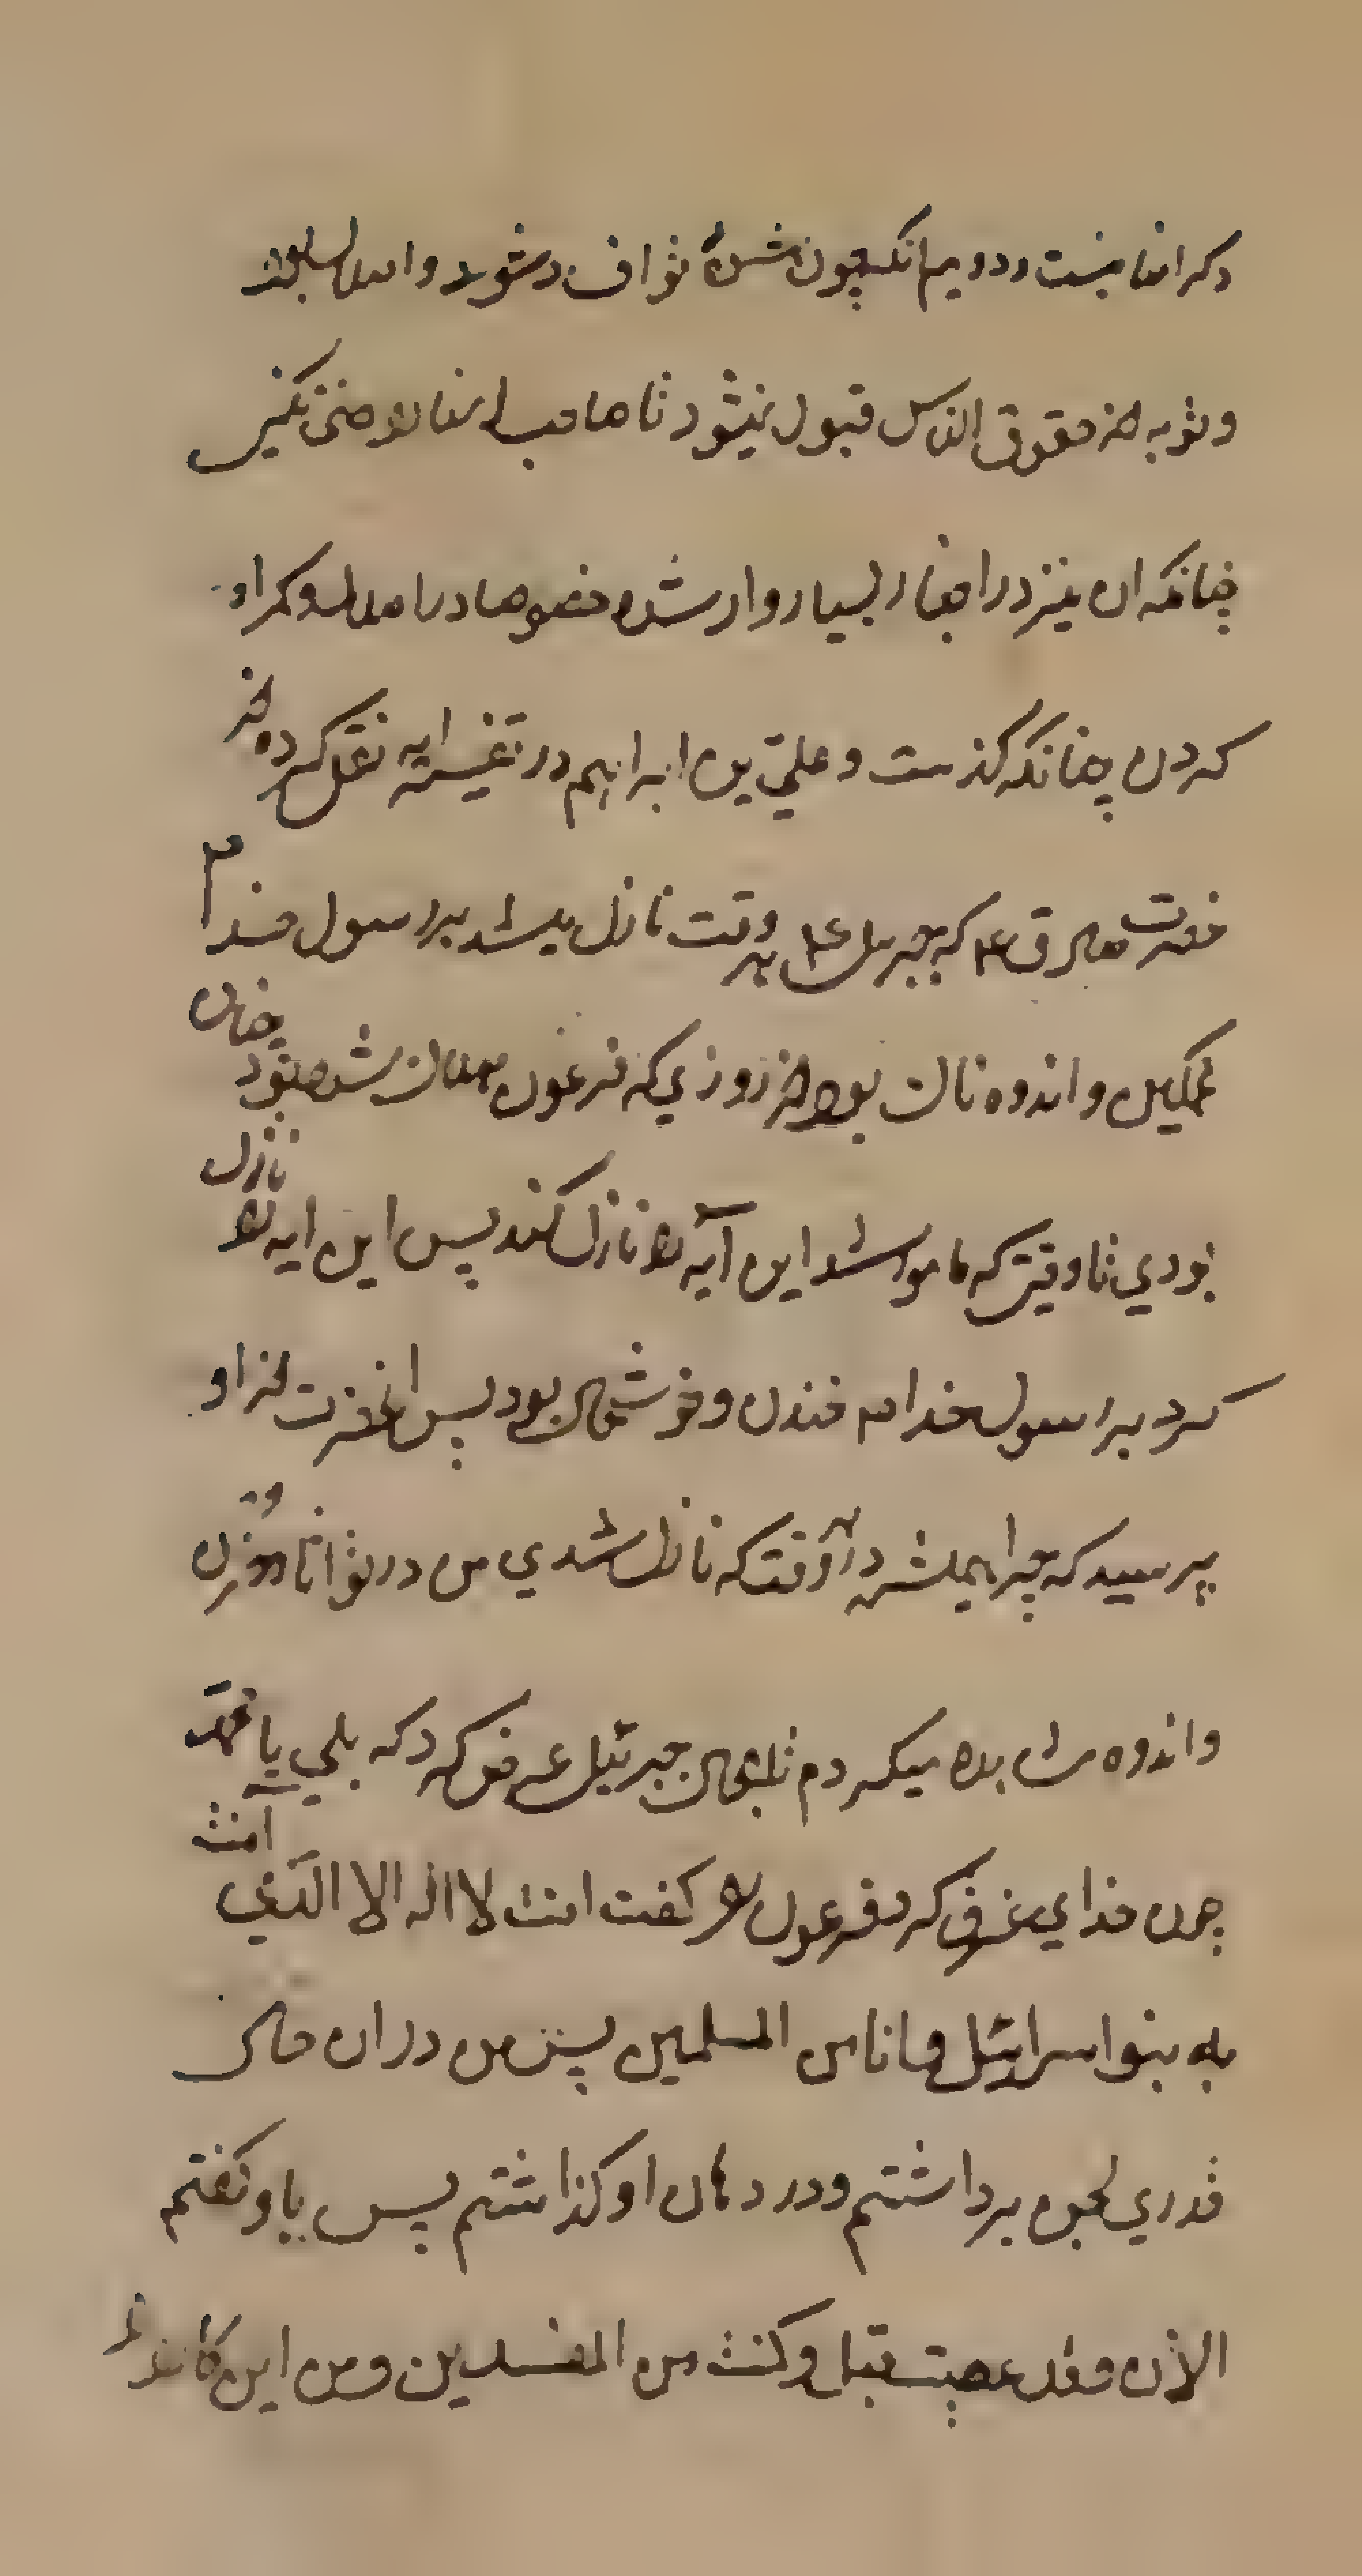 و توبه از حقوق الناس قبول نمیشود تا صاحب انها را راضی نکنی
چنانکه ان نیز در اخبار بسیار وارد شده خصوصا در اضلال و کمراه
کردن چنانکه کذشت و علی بن ابراهیم در تفسیر ایه نقل کرده از
حضرت صادق ع که جبرئیل ع هر وقت نازل میشد بر رسول خدا ص
غمکین و اندوه ناک بود از روزي که فرعون هلاک شده بود چنان
بودي تا وقتی که مامور شد این آیه را نازل کند پس این ایه را نازل
کرد بر رسول خدا ص خندان و خوشحال بود پس انحضرت از او
پرسید که چرا همیشه در آنوقت که نازل شدي من در تو اثار حزن
و اندوه مشاهده میکردم تا بحال جبرئیل عرض کرد که بلي یا محمد
چون خداي غرق کرد فرعون را کفت امنت لا اله الا الذي آمنت
به بنو اسرائیل و انا من المسلمین پس من در ان حال
قدري لجن برداشتم و در دهان او کذاشتم پس باو کفتم
الان و قد عصیت قبل و کنت من المفسدین و من این کار را